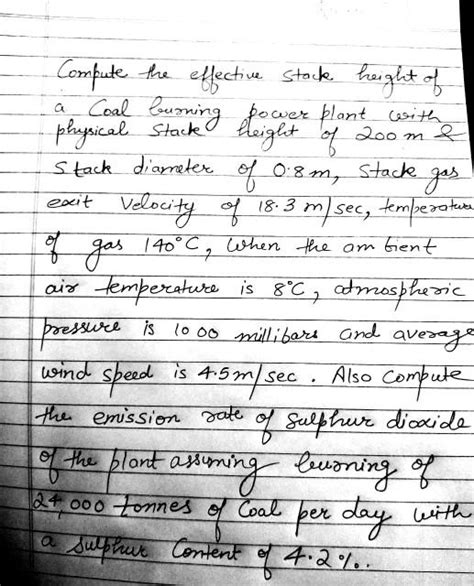 Compute the effective stack height of
a Coal burning power plant with
physical stack height of 200 m &
Stack diameter of 0.8 m, stack gas
exit Velocity of 18.3 m/sec, temperature
of gas 140°C, when the ambient
air temperature is 8°C, atmospheric
pressure is 1000 millibars and average
wind speed is 4.5 m/sec. Also compute
the emission rate of sulphur dioxide
of the plant assuming burning of
24,000 tonnes of Coal per day with
a sulphur Content of 4.2%.